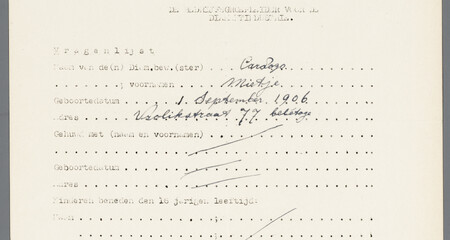 DE BEDRIJFSGENOOTEN VOOR DE
DIAMANTINDUSTRIE.
Vragenlijst
Naam van de(n) Diam.bew.(ster) Cardozo
" " " ; voornamen Mietje
Geboortedatum 1 September 1906
Adres Vrolikstraat 77 beletage
Gehuwd met (naam en voornamen)
Geboortedatum
Adres
Kinderen beneden den 16 jarigen leeftijd.
Naam